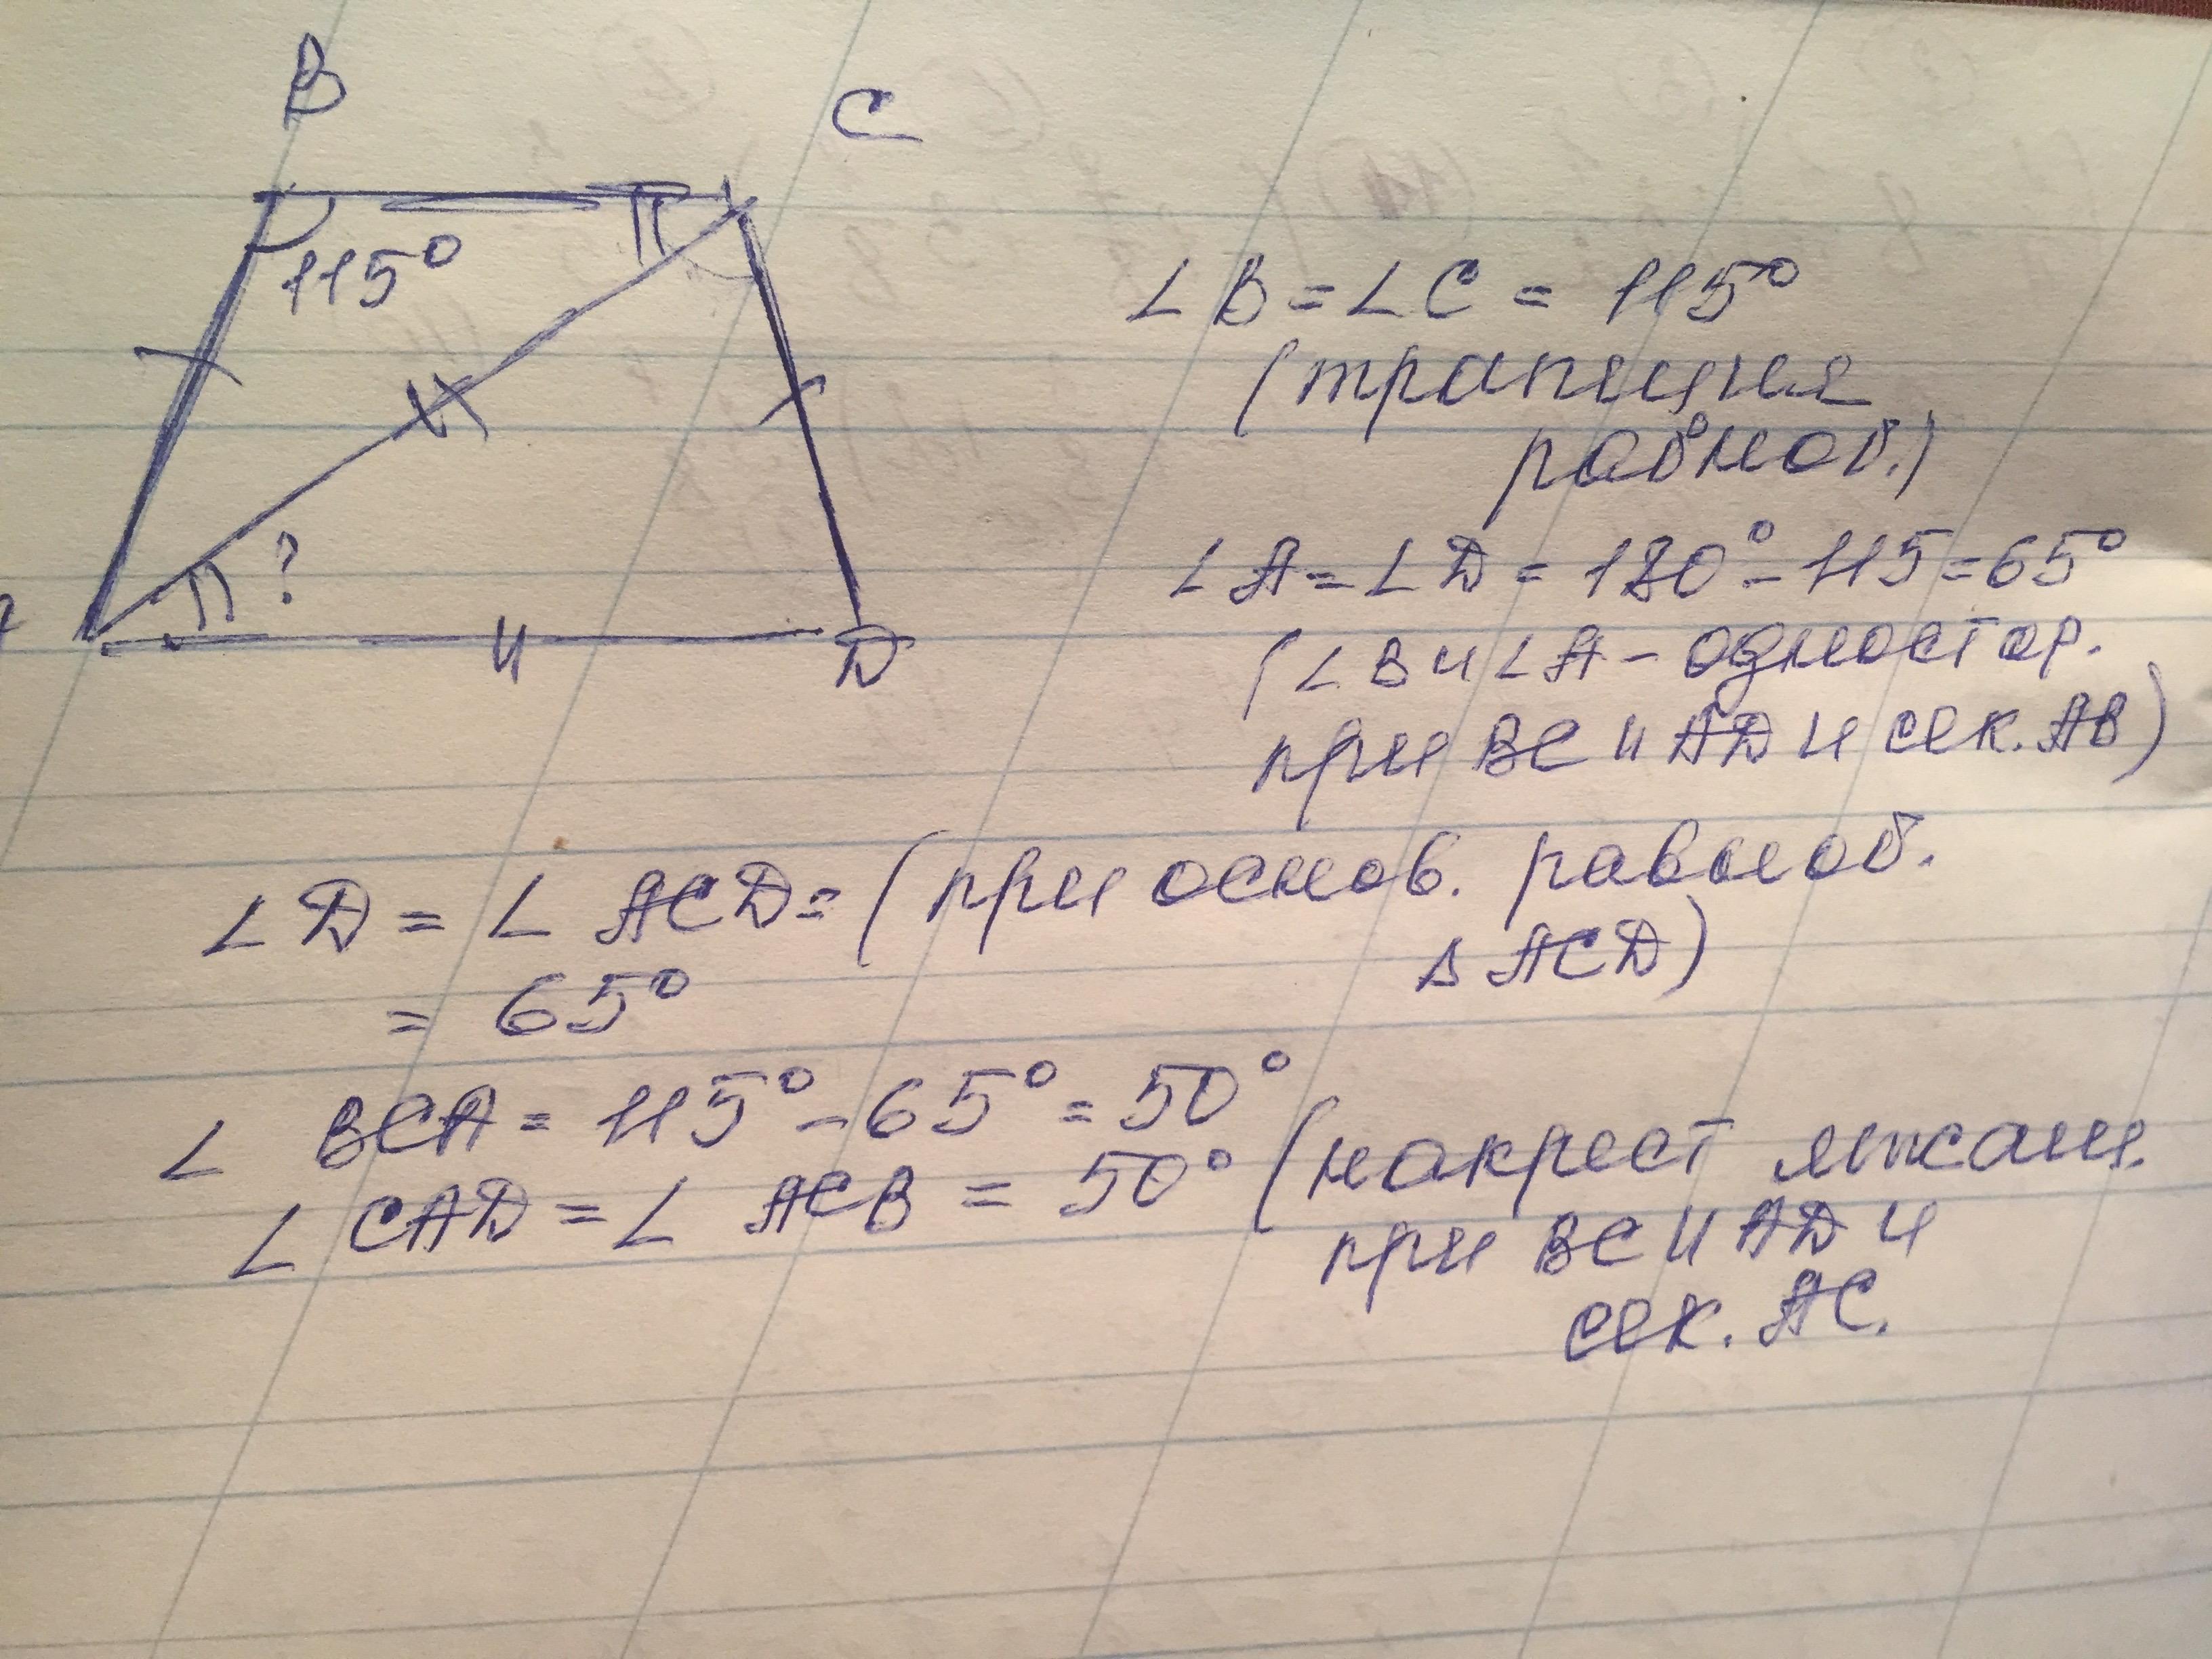 B
C
115°
?
D
∠B = ∠C = 115°
(трапеция
равноб.)
∠A = ∠D = 180° - 115 = 65°
(∠B и ∠A - одностор.
при BC ∥ AD и сек. AB)
∠D = ∠ACD = (при основ. равноб.
△ACD)
= 65°
∠BCA = 115° - 65° = 50°
∠CAD = ∠ACB = 50° (накрест лежащ.
при BC ∥ AD и
сек. AC.